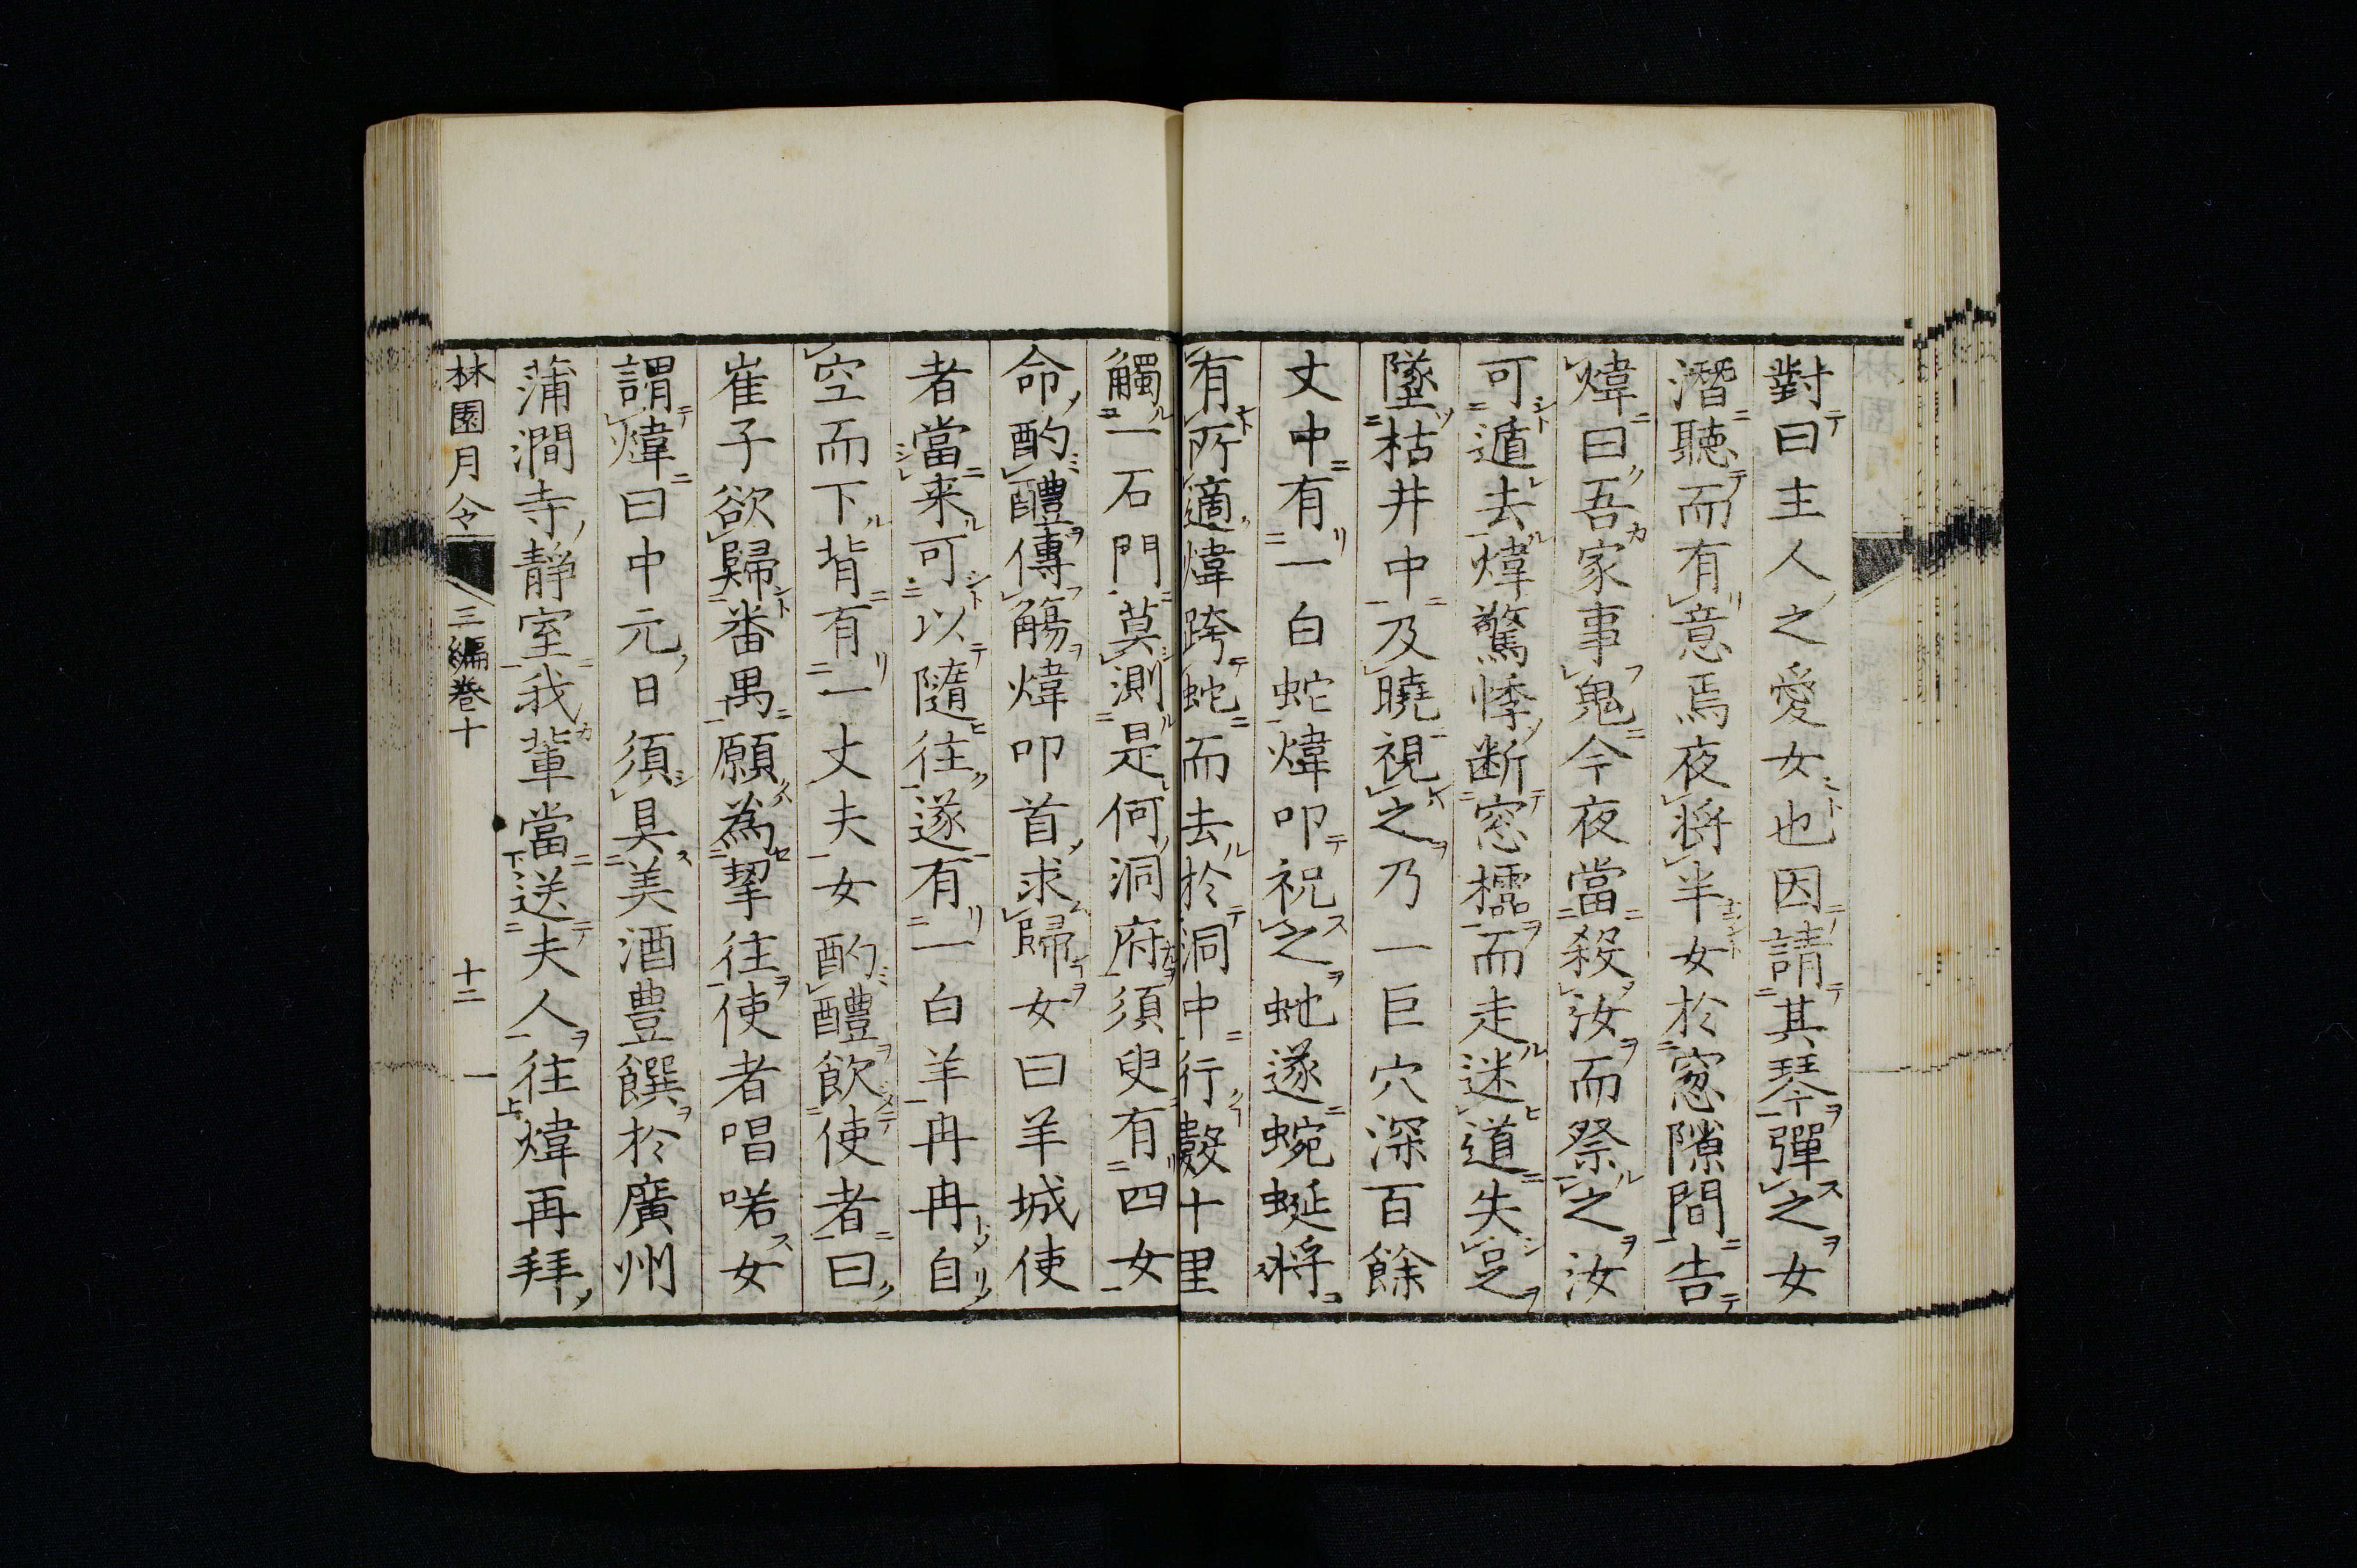 對曰主人之愛女也因請其琴彈之女
潛聽而有意焉夜將半女於窓隙間告
煒曰吾家事鬼今夜當殺汝而祭之汝
可遁去煒驚悸断窓櫺而走迷道失足
墜枯井中及曉視之乃一巨穴深百餘
丈中有一白蛇煒叩祝之虵遂蜿蜒將
有所適煒跨蛇而去於洞中行數十里
觸一石門莫測是何洞府須臾有四女
命酌醴傳觴煒叩首求歸女曰羊城使
者當来可以隨往遂有一白羊冉冉自
空而下背有一丈夫女酌醴飲使者曰
崔子欲歸番禺願為挈往使者唱喏女
謂煒曰中元日須具美酒豊饌於廣州
蒲澗寺靜室我輩當送夫人往煒再拜
林園月令 三編巻十 十二